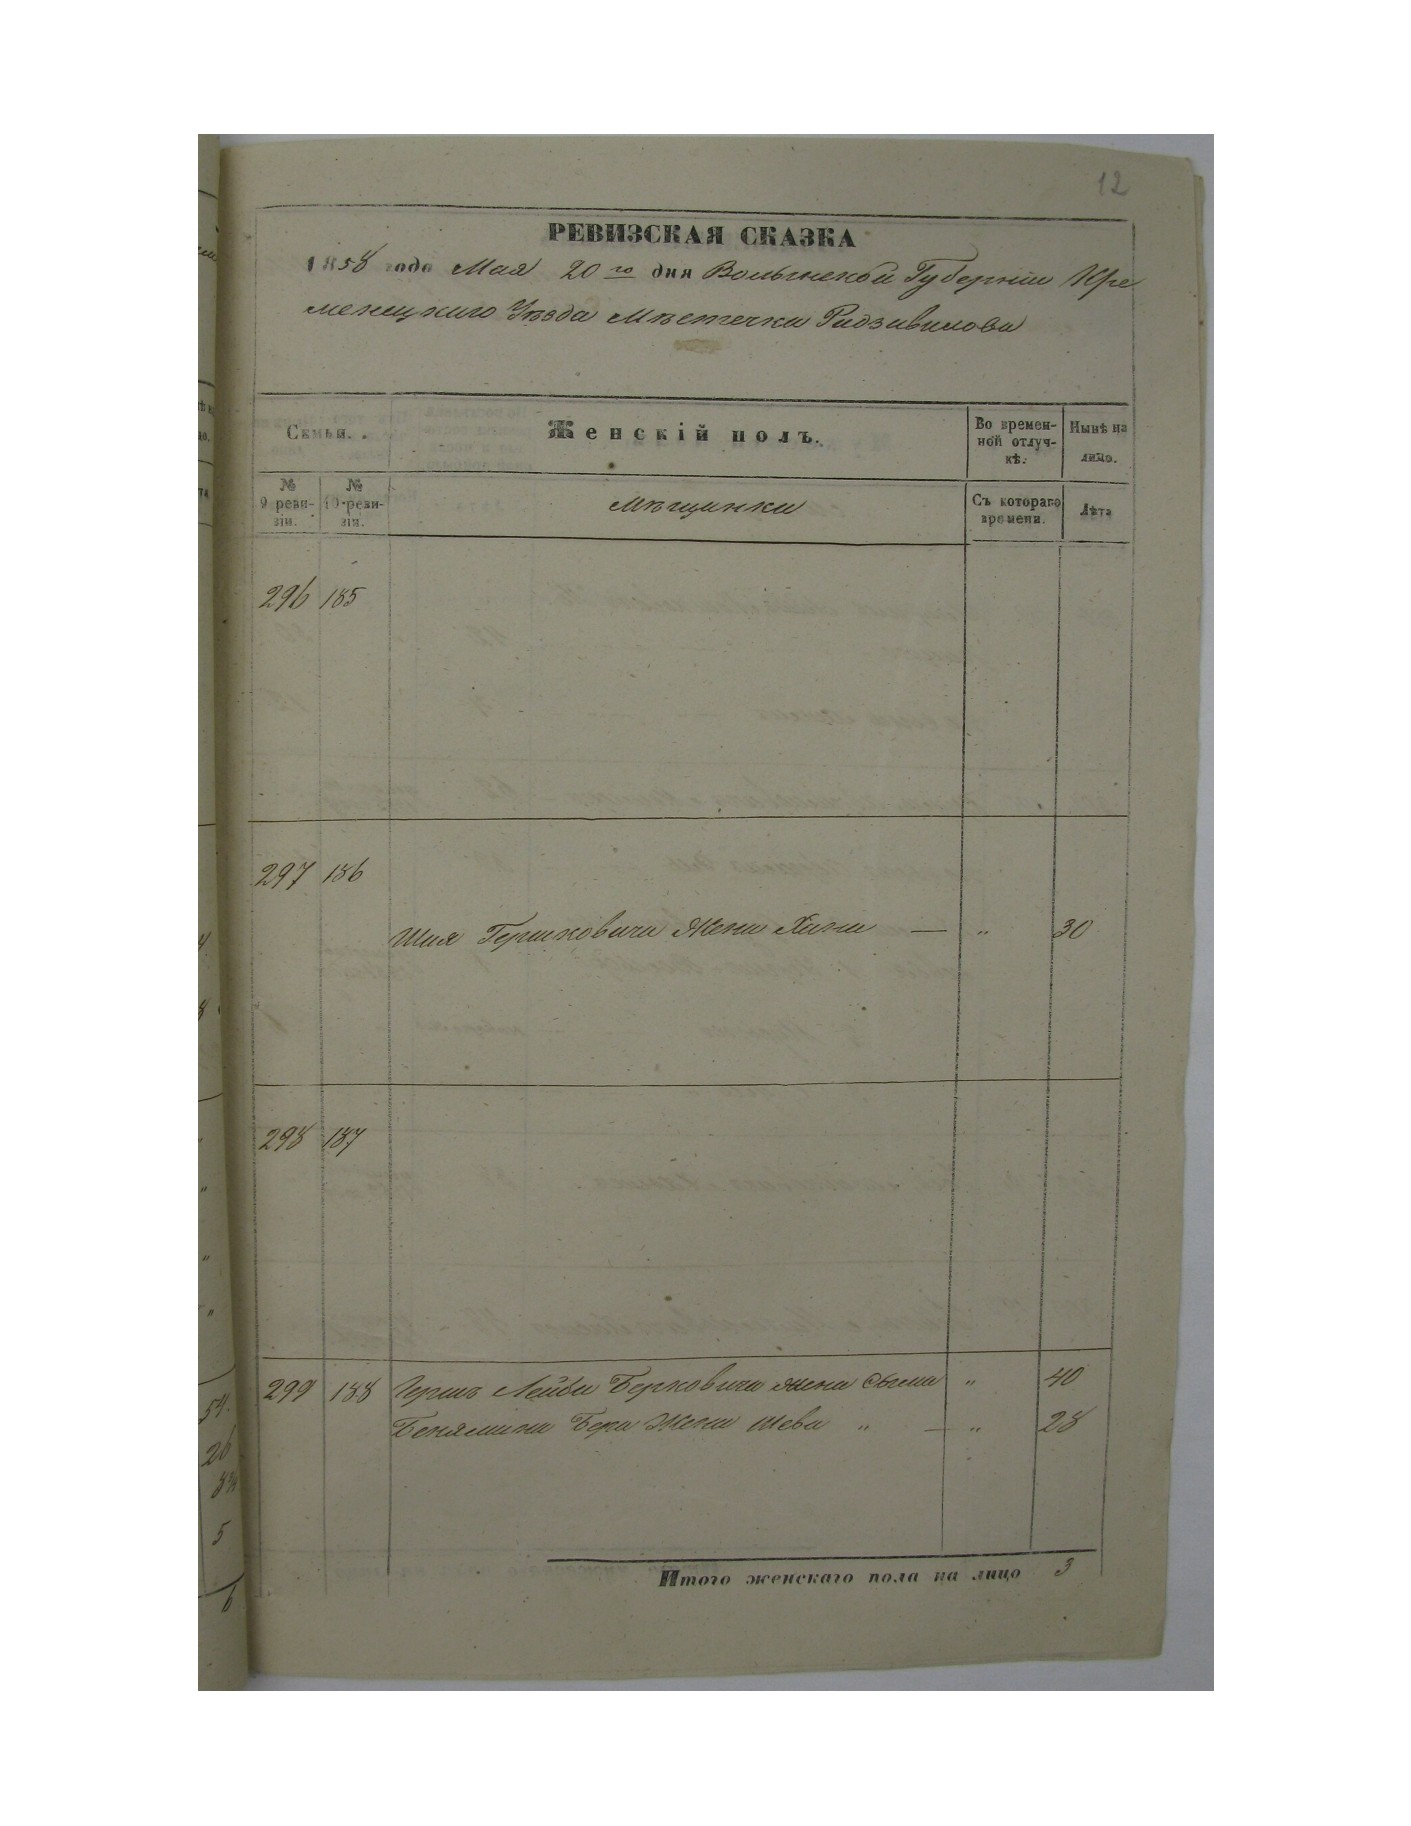 12
РЕВИЗСКАЯ СКАЗКА
1858 года Мая 20го дня Волынской Губерніи Кре
менецкаго Уѣзда Мѣстечка Радзивилова
Семьи. Женскій полъ. Во времен-ной отлуч-кѣ. Нынѣ на лицо.
№ 9 реви-зіи. № 10 реви-зіи. Мѣщанки Съ котораго времени. Лѣта
296 185
297 186
Шия Гершковича Жена Хана — „ 30
298 187
299 188 Герш Лейба Берковича жена „ 40
Бенямина Бера Жена Шева „ — „ 28
Итого женскаго пола на лицо 3
54.
26
5
6